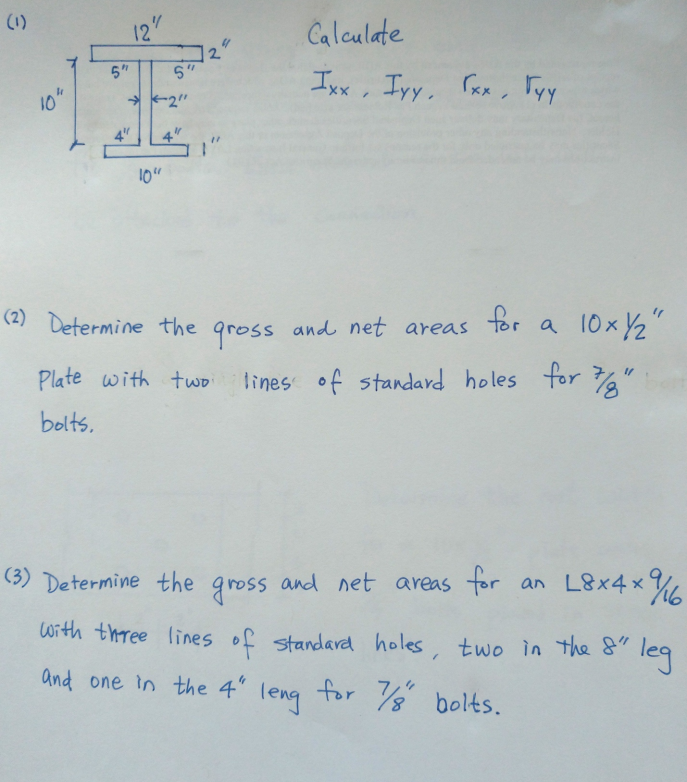 (1)
12"
2"
5" 5"
10"
2"
4" 4"
1"
10"
Calculate
Ixx, Iyy, rxx, ryy
(2) Determine the gross and net areas for a 10x1/2"
Plate with two lines of standard holes for 7/8"
bolts.
(3) Determine the gross and net areas for an L8x4x9/16
with three lines of standard holes, two in the 8" leg
and one in the 4" leng for 7/8" bolts.